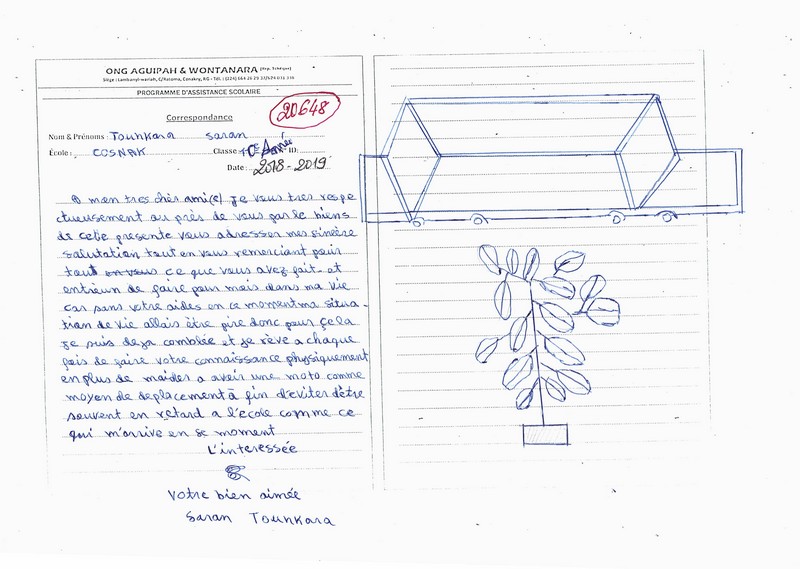 ONG AGUIPAH & WONTANARA (Rep. Tchèque)
Siège : Lambanyi-wariah, C/Ratoma, Conakry, RG -
PROGRAMME D'ASSISTANCE SCOLAIRE
Correspondance
20648
Nom & Prénoms : Tounkara Saran
École : COSNAK Classe 10e Année ID:
Date : 2018 - 2019
A mon tres cher ami(e) je vous tres respe
ctueusement au près de vous par le biens
de cette presente vous adresser mes sincère
salutation tout en vous remerciant pour
tout en vous ce que vous avez fait et
entrieun de faire pour mais dans ma vie
car sans votre aides en ce moment ma situa-
tion de vie allais être pire donc pour çela
je suis deja comblée et je rève a chaque
fois de faire votre connaissance physiquement
en plus de maider a avoir une moto comme
moyen de deplacement à fin d'eviter d'être
souvent en retard a l'école comme ce
qui m'arrive en se moment
L'interessée
Votre bien aimée
Saran Tounkara